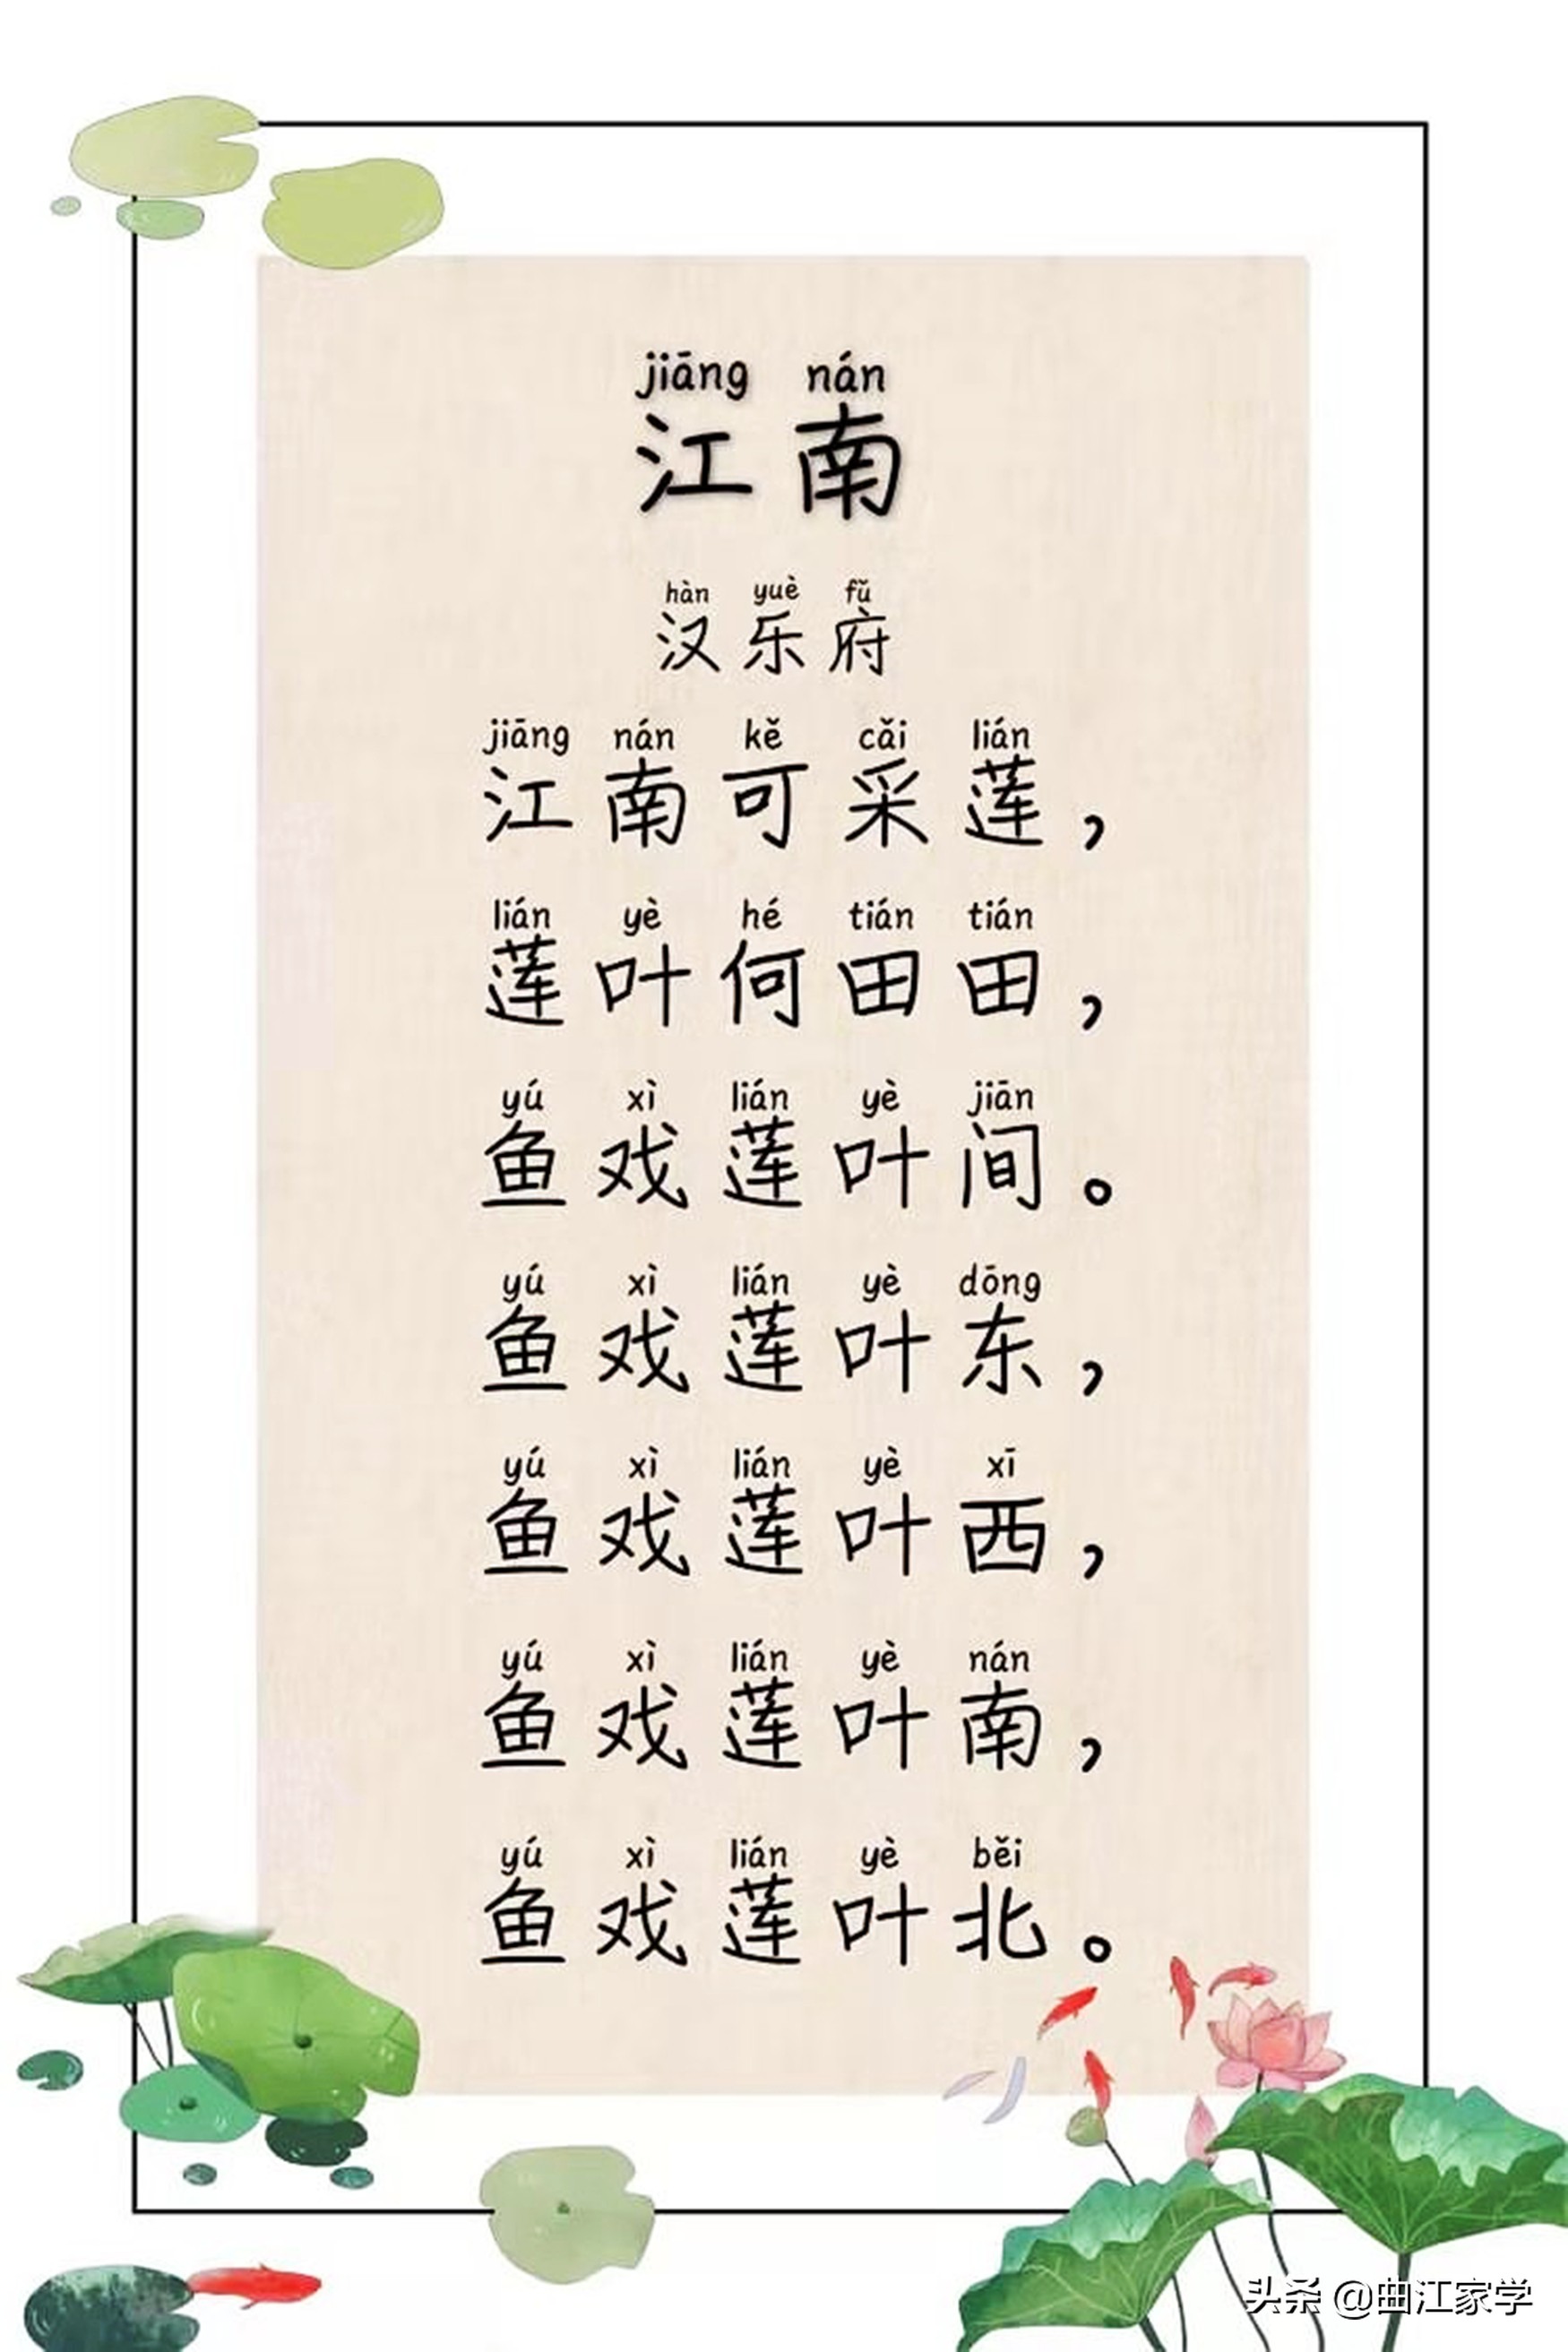 jiāng nán
江南
hàn yuè fǔ
汉乐府
jiāng nán kě cǎi lián
江南可采莲，
lián yè hé tián tián
莲叶何田田，
yú xì lián yè jiān
鱼戏莲叶间。
yú xì lián yè dōng
鱼戏莲叶东，
yú xì lián yè xī
鱼戏莲叶西，
yú xì lián yè nán
鱼戏莲叶南，
yú xì lián yè běi
鱼戏莲叶北。
头条 @曲江家学